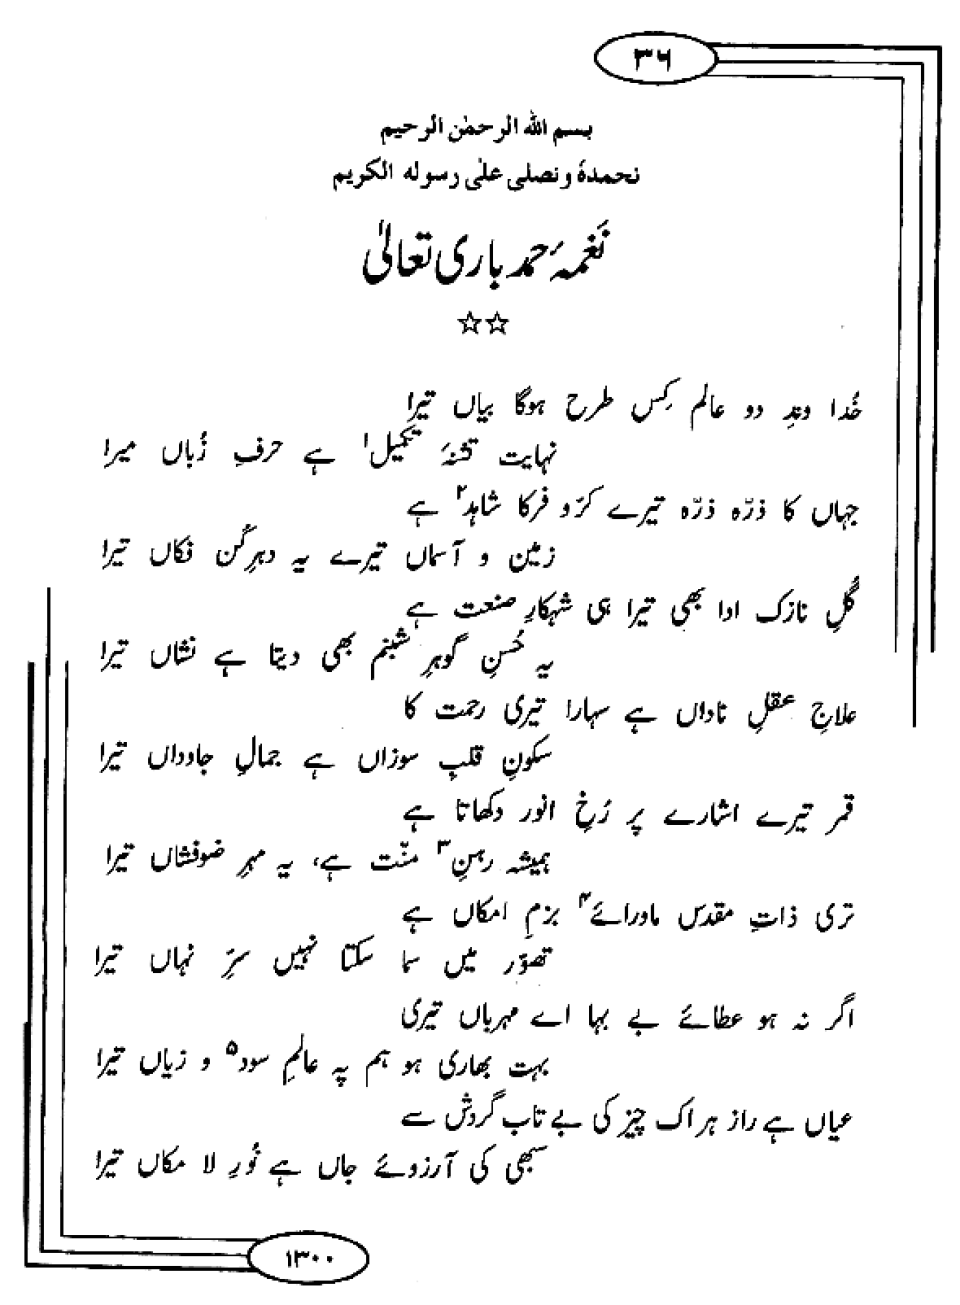 ۳۶
بسم اللہ الرحمٰن الرحیم
نحمدہٗ ونصلی علٰی رسولہ الکریم
نَغمۂ حمد باری تعالیٰ
☆☆
خُدا وندِ دو عالم کِس طرح ہوگا بیاں تیرا
نہایت تشنۂ تکمیل۱ ہے حرفِ زُباں میرا
جہاں کا ذرّہ ذرّہ تیرے کرّو فرکا شاہد۲ ہے
زمین و آسماں تیرے یہ دہرِکُن فکاں تیرا
گُلِ نازک ادا بھی تیرا ہی شہکارِ صنعت ہے
یہ حُسنِ گوہرِ شبنم بھی دیتا ہے نشاں تیرا
علاجِ عقلِ ناداں ہے سہارا تیری رحمت کا
سکونِ قلبِ سوزاں ہے جمالِ جاوداں تیرا
قمر تیرے اشارے پر رُخِ انور دکھاتا ہے
ہمیشہ رہنِ۳ منّت ہے، یہ مہرِ ضوفشاں تیرا
تری ذاتِ مقدس ماورائے۴ بزمِ امکاں ہے
تصوّر میں سما سکتا نہیں سرِّ نہاں تیرا
اگر نہ ہو عطائے بے بہا اے مہرباں تیری
بہت بھاری ہو ہم پہ عالمِ سود۵ و زیاں تیرا
عیاں ہے راز ہراک چیز کی بے تاب گردش سے
سبھی کی آرزوئے جاں ہے نُورِ لا مکاں تیرا
۱۳۰۰